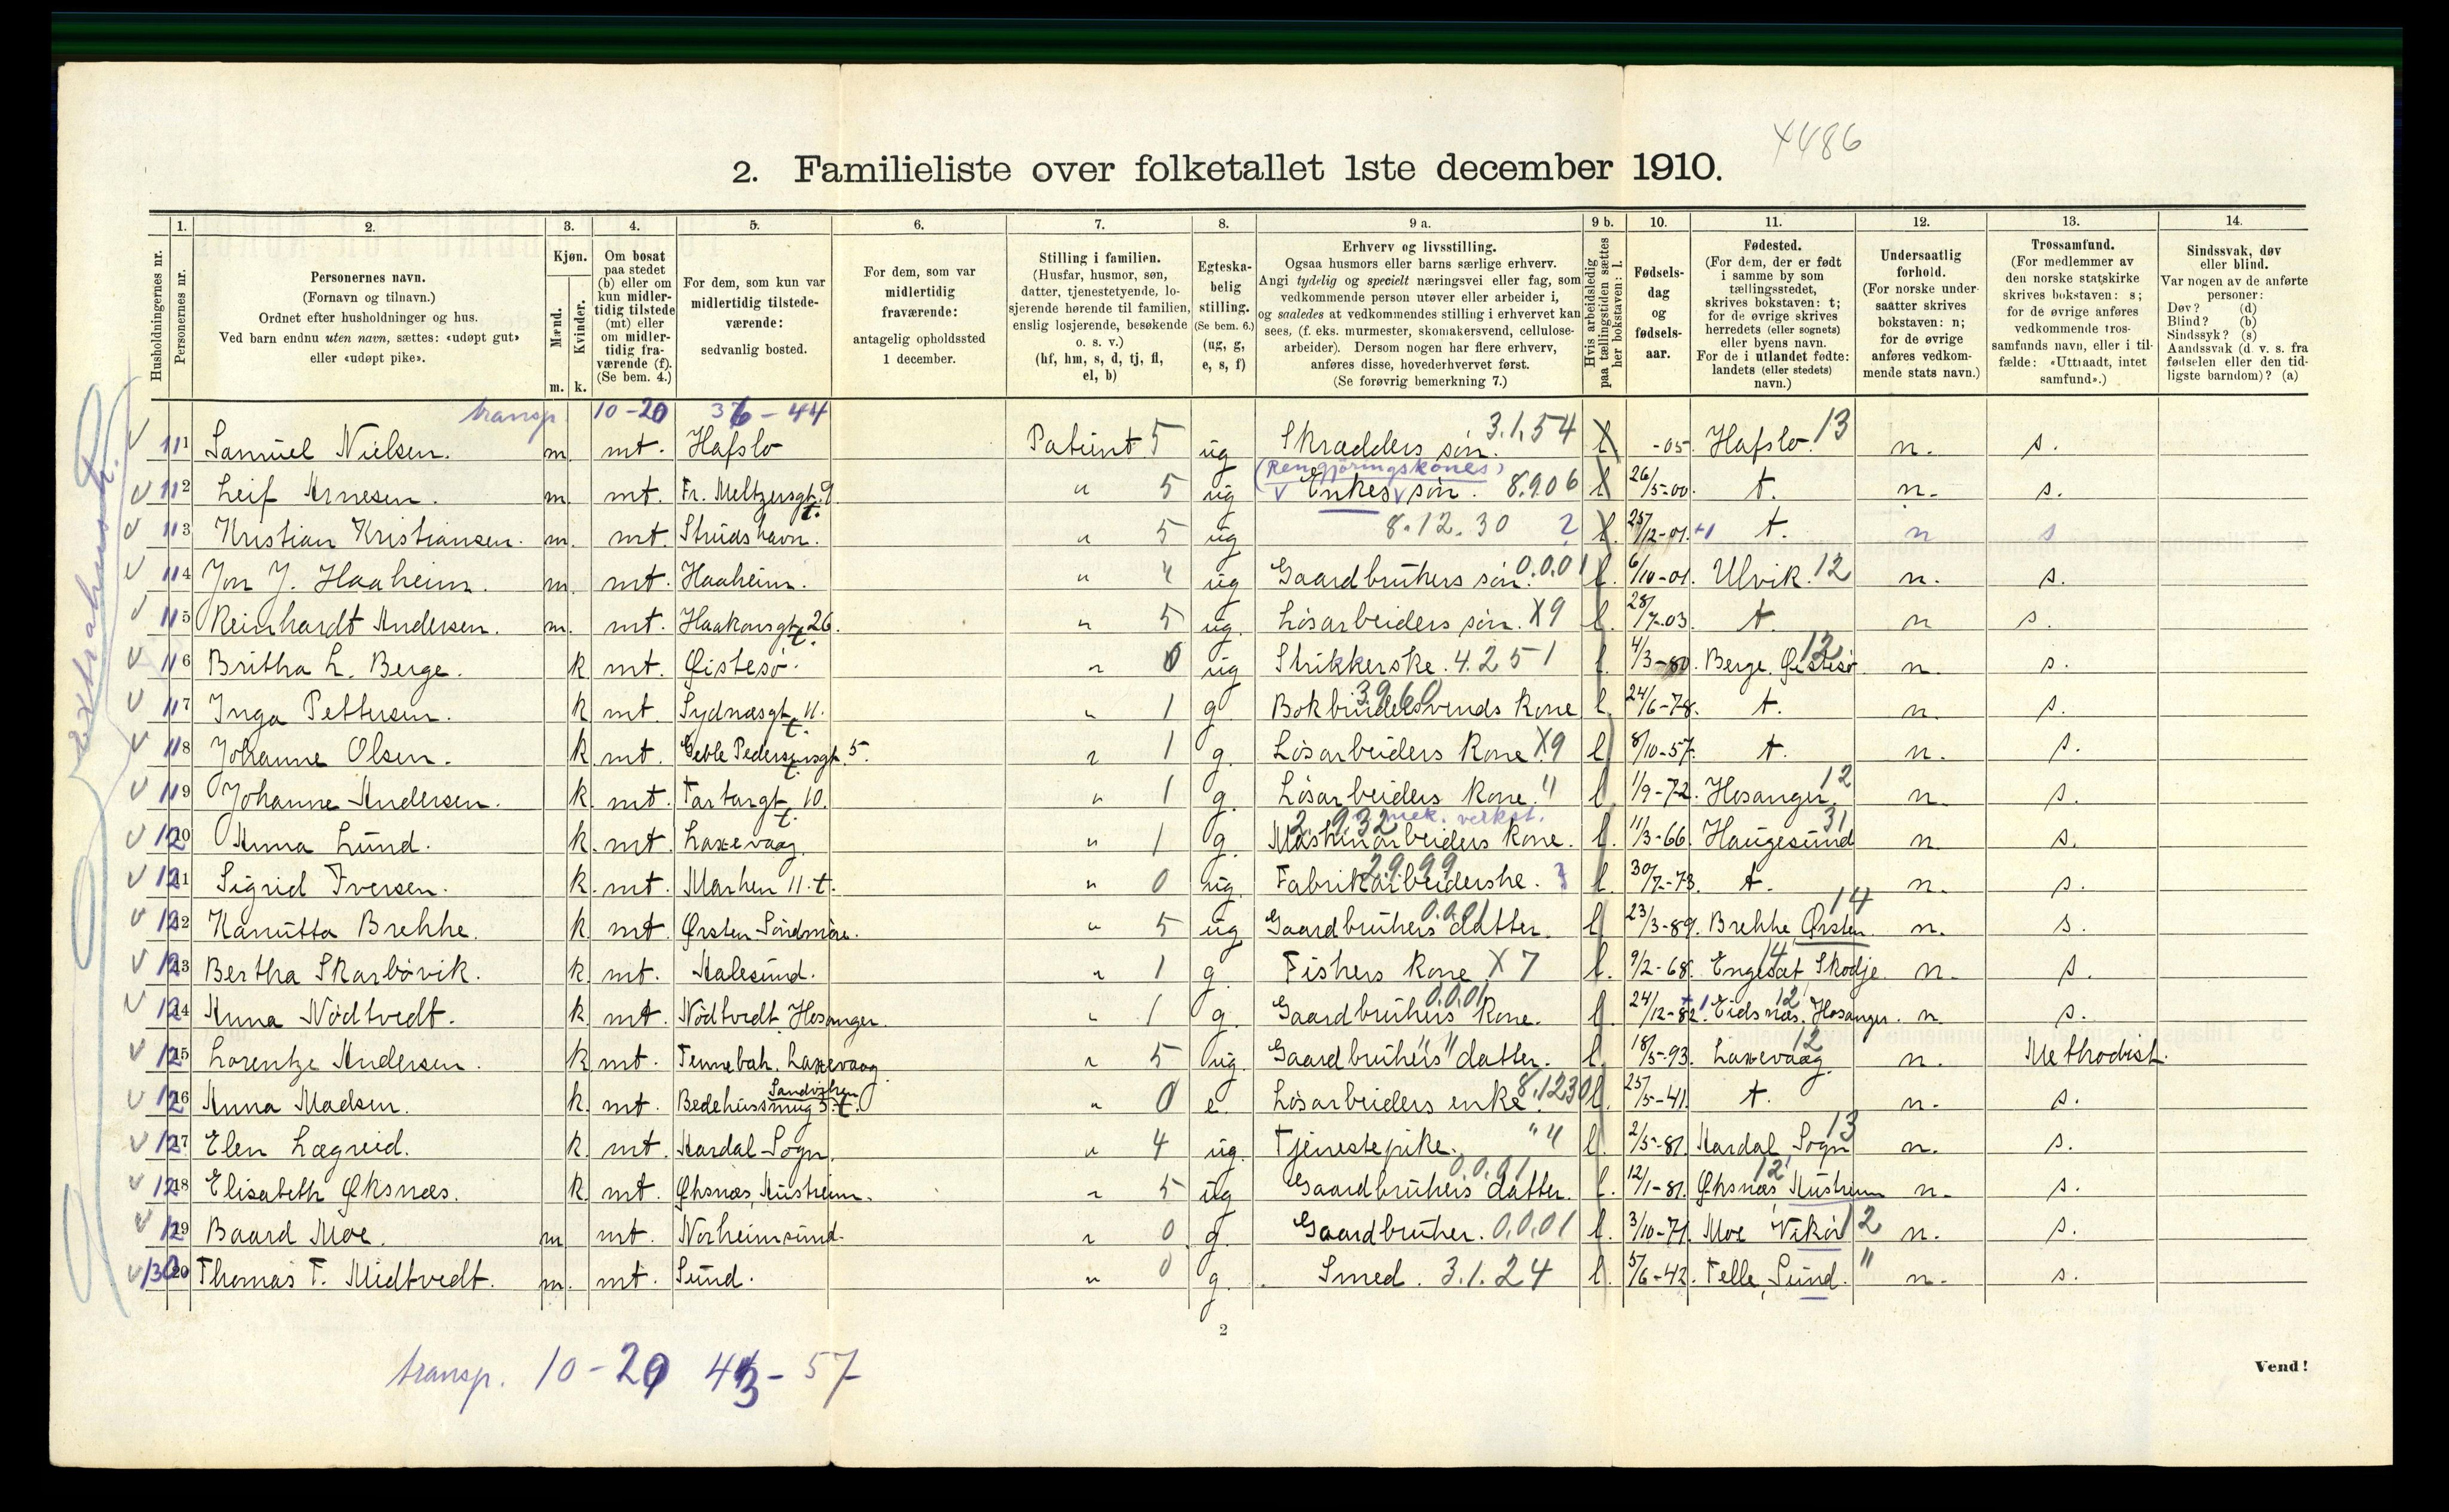 4486
2. Familieliste over folketallet 1ste december 1910.
Husholdningernes nr.
1. Personernes nr.
2. Personernes navn. (Fornavn og tilnavn.) Ordnet efter husholdninger og hus. Ved barn endnu uten navn, sættes: «udøpt gut» eller «udøpt pike».
3. Kjøn. Mænd. Kvinder. m. k.
4. Om bosat paa stedet (b) eller om kun midlertidig tilstede (mt) eller om midlertidig fraværende (f). (Se bem. 4.)
5. For dem, som kun var midlertidig tilstedeværende: sedvanlig bosted.
6. For dem, som var midlertidig fraværende: antagelig opholdssted 1 december.
7. Stilling i familien. (Husfar, husmor, søn, datter, tjenestetyende, losjerende hørende til familien, enslig losjerende, besøkende o. s. v.) (hf, hm, s, d, tj, fl, el, b)
8. Egteskabelig stilling. (Se bem. 6.) (ug, g, e, s, f)
9 a. Erhverv og livsstilling. Ogsaa husmors eller barns særlige erhverv. Angi tydelig og specielt næringsvei eller fag, som vedkommende person utøver eller arbeider i, og saaledes at vedkommendes stilling i erhvervet kan sees, (f. eks. murmester, skomakersvend, cellulosearbeider). Dersom nogen har flere erhverv, anføres disse, hovederhvervet først. (Se forøvrig bemerkning 7.)
9 b. Hvis arbeidsledig paa tællingstiden sættes her bokstaven: l.
10. Fødselsdag og fødselsaar.
11. Fødested. (For dem, der er født i samme by som tællingsstedet, skrives bokstaven: t; for de øvrige skrives herredets (eller sognets) eller byens navn. For de i utlandet fødte: landets (eller stedets) navn.)
12. Undersaatlig forhold. (For norske undersaatter skrives bokstaven: n; for de øvrige anføres vedkommende stats navn.)
13. Trossamfund. (For medlemmer av den norske statskirke skrives bokstaven: s; for de øvrige anføres vedkommende trossamfunds navn, eller i tilfælde: «Uttraadt, intet samfund».)
14. Sindssvak, døv eller blind. Var nogen av de anførte personer: Døv? (d) Blind? (b) Sindssyk? (s) Aandssvak (d. v. s. fra fødselen eller den tidligste barndom)? (a)
transp. 10-20 36-44
111 Samuel Nielsen. m. mt. Hafslo Patient 5 ug Skrædders søn. 3.1.54 l -05. Hafslo. 13 n. s.
(Rengjøringskones)
112 Leif Arnesen. m. mt. Fr. Meltzersgt. 9 t. " 5 ug Enkes søn. 8.9.06 l 26/5-00. t. n. s.
113 Kristian Kristiansen. m. mt. Strudshavn. " 5 ug 8.12.30 ? l. 25/12-01. +1 t. n s
114 Jon J. Haaheim. m. mt. Haaheim. " 4 ug Gaardbrukers søn. 0.0.01 l. 6/10-01. Ulvik. 12 n. s.
115 Reinhardt Andersen. m. mt. Haakonsgt. 26. t. " 5 ug. Løsarbeiders søn. X9 l. 28/7-03. t. n s.
116 Britha L. Berge. k mt. Øistesø. " 0 ug Strikkerske. 4.2.51 l. 4/3-80. Berge. Øistesø 12 n. s.
117 Inga Pettersen. k mt. Sydnæsgt. 11. t. " 1 g Bokbindersvends kone 3960 l. 24/6-78. t. n. s.
118 Johanne Olsen. k mt. Geble Pedersensgt. 5. t. " 1 g. Løsarbeiders kone X9 l 8/10-57. t. n. s.
119 Johanne Andersen. k. mt. Tartargt. 10. t. " 1 g. Løsarbeiders kone. " l 1/9-72. Hosanger. 12 n. s.
2.932 mek. verkst.
120 Anna Lund. k. mt. Laxevaag. " 1 g. Maskinarbeiders kone. l. 11/3-66. Haugesund 31 n. s.
121 Sigrid Iversen. k. mt. Marken 11. t. " 0 ug. Fabrikarbeiderske. 2.9.99 l. 30/7-73. t. n. s.
122 Hanutta Brekke. k mt. Ørsten Søndmøre. " 5 ug Gaardbrukers datter. 0.0.01 l 23/3-89. Brekke, Ørsten 14 n. s.
123 Bertha Skarbøvik. k. mt. Aalesund. " 1 g. Fiskers kone X7 l. 9/2-68. Engeset Skodje. 14 n. s.
124 Anna Nødtvedt. k. mt. Nødtvedt, Hosanger. " 1 g. Gaardbrukers kone. 0.0.01 l. 24/12-82. +1 Eidsnæs. Hosanger. 12 n. s.
125 Lorentze Andersen. k. mt. Tennebak. Laxevaag " 5 ug. Gaardbrukers datter. " l. 18/5-93. Laxevaag. 12 n. Methodist.
126 Anna Madsen. k. mt. Bedehussmug 5. t. Sandviken " 0 e. Løsarbeiders enke. 8.1230 l. 25/5-41. t. n. s.
127 Elen Lægreid. k. mt. Aardal Sogn. " 4 ug. Tjenestepike. " 4 l. 2/5-81. Aardal, Sogn 13 n. s.
128 Elisabeth Øksnæs. k. mt. Øksnæs, Austrheim. " 5 ug Gaardbrukers datter. 0.0.01 l. 12/1-81. Øksnæs, Austrheim 12 n. s.
129 Baard Moe. m mt. Norheimsund. " 0 g. Gaardbruker. 0.0.01 l. 3/10-71. Moe Vikør 12 n. s.
130 Thomas T. Midtvedt. m. mt. Sund. " 0 g. Smed. 3.1.24 l. 5/6-42. Telle, Sund. " n. s.
2
transp. 10-29 43-57
Vend!